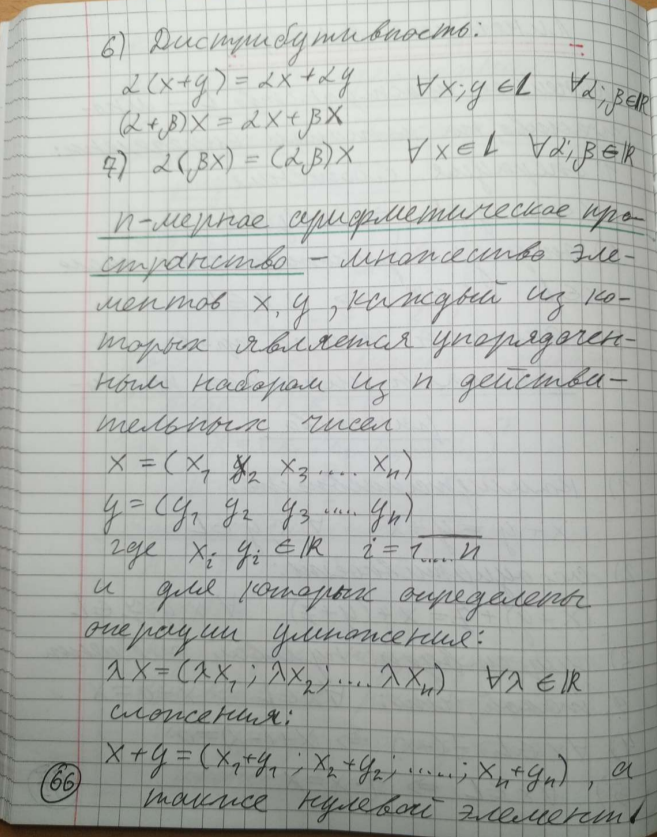 6) Дистрибутивность:
α(x+y) = αx+αy ∀x;y∈L ∀α;β∈ℝ
(α+β)x = αx+βx
7) α(βx) = (αβ)x ∀x∈L ∀α;β∈ℝ
n-мерное арифметическое про-
странство – множество эле-
ментов x, y, каждый из ко-
торых является упорядочен-
ным набором из n действи-
тельных чисел
x = (x₁ x₂ x₃ .... xₙ)
y = (y₁ y₂ y₃ ..... yₙ)
где xᵢ yᵢ ∈ ℝ i = 1....n
и для которых определены
операции умножения:
λx = (λx₁; λx₂; .... λxₙ) ∀λ ∈ ℝ
сложения:
x+y = (x₁+y₁; x₂+y₂; .....; xₙ+yₙ), а
также нулевой элемент
66